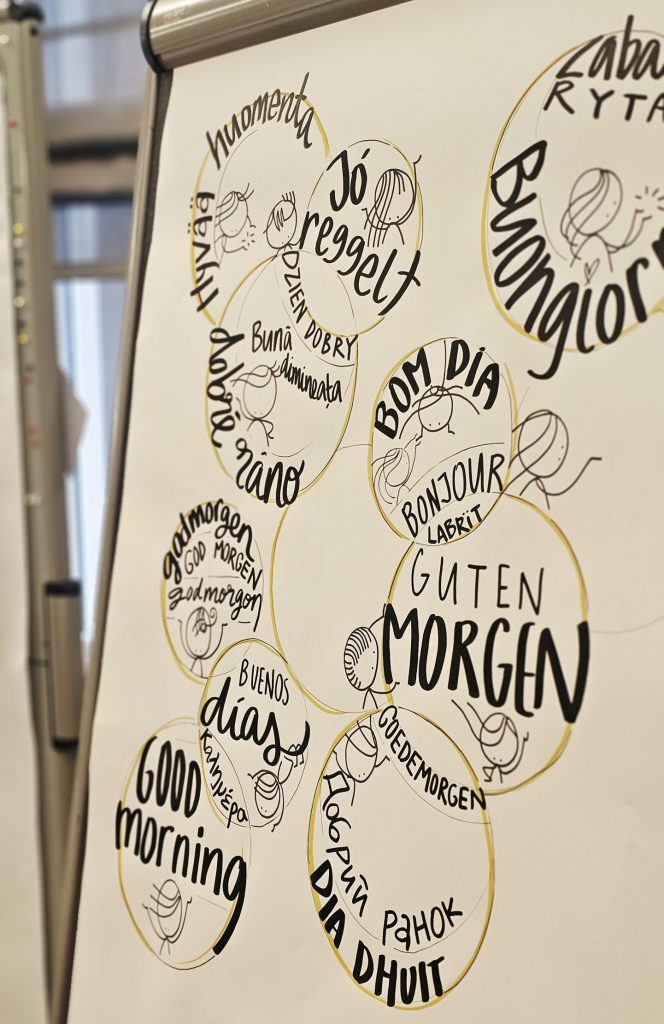 Hyvää huomenta
Jó
reggelt
DZIEŃ DOBRY
Bună
dimineața
dobré ráno
RYTA
Buongior
BOM DIA
BONJOUR
LABRĪT
godmorgen
GOD MORGEN
godmorgon
GUTEN
MORGEN
BUENOS
días
Καλημέρα
GOOD
morning
GOEDEMORGEN
Добрий
РаНОК
DIA DHUIT